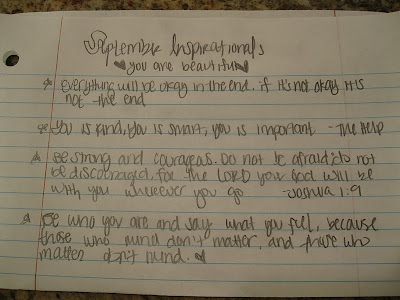 September Inspirationals
you are beautiful
everything will be okay in the end. if it's not okay it is
not the end
You is kind, you is smart, you is important - The Help
Be strong and courageous. Do not be afraid; do not
be discouraged, for the LORD your God will be
with you wherever you go - Joshua 1:9
Be who you are and say what you feel, because
those who mind don't matter, and those who
matter don't mind.